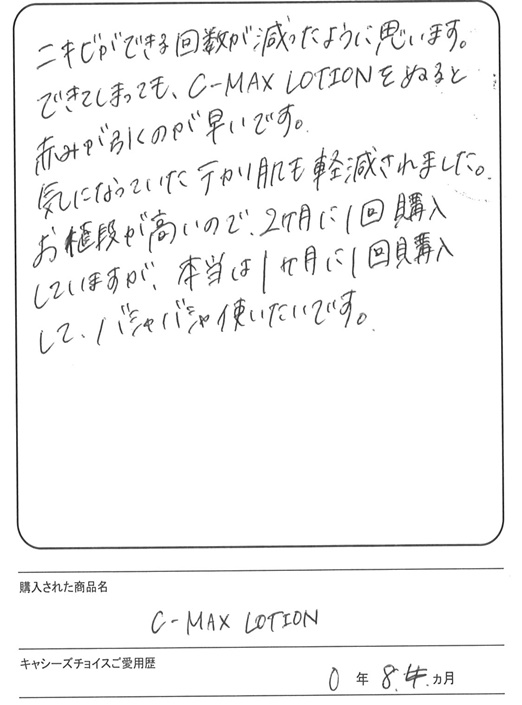 ニキビができる回数が減ったように思います。
できてしまっても、C-MAX LOTIONをぬると
赤みが引くのが早いです。
気になっていたテカリ肌も軽減されました。
お値段が高いので、2ヶ月に1回購入
していますが、本当は1ヶ月に1回購入
して、バシャバシャ使いたいです。
購入された商品名
C-MAX LOTION
キャシーズチョイスご愛用歴
0 年 8. ヵ月